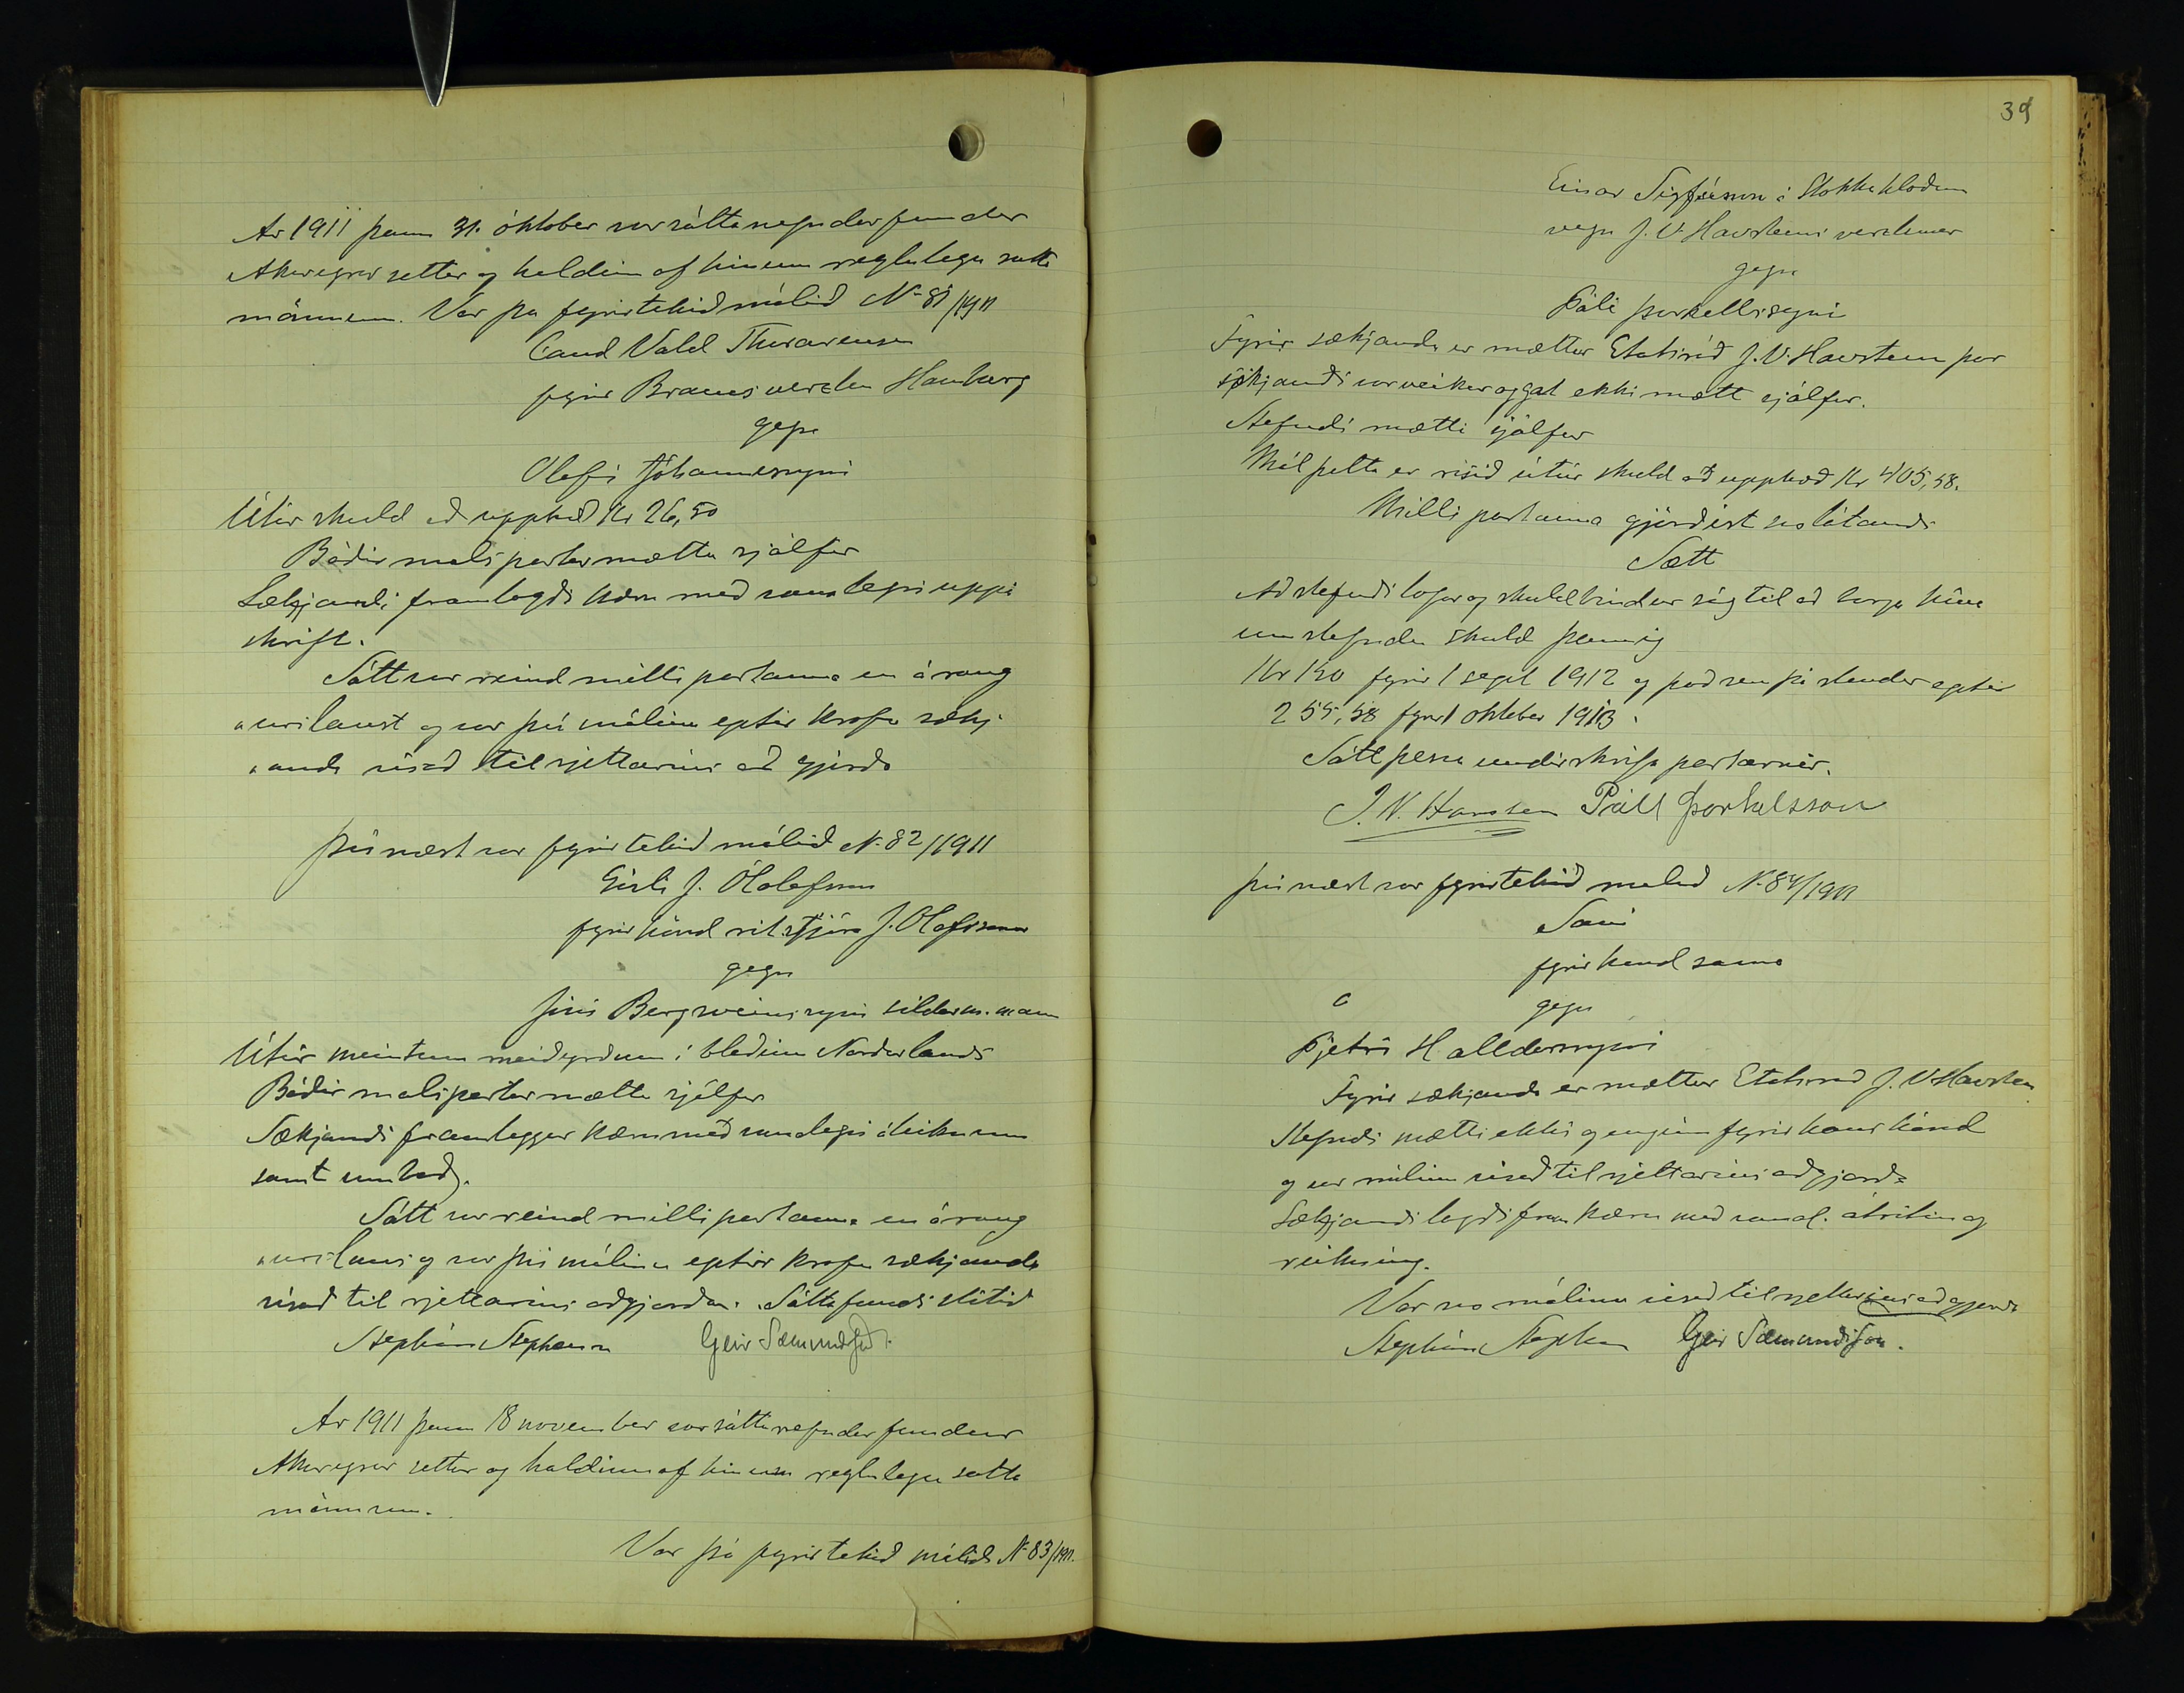 Ar 1911 þann 31. óktober var sáttanefndar fundur
Akureyrar settur og haldinn af hinum reglulegu sátta
mönnum. Var þa fyrirtekið málið N- 81/1911
Cand Vald Thorarensen
fyrir Brauns verzlun Hamburg
gegn
Olafi Jóhannessyni
Útúr skuld að upphæð Kr 26,50
Báðir malspartar mættu sjálfir
Sækjandi framlagði kæru með sama legri uppá
skrift.
Sátt var reind milli partanna en árang
"urslaust og var því málinu eptir krofu sækj
"anda vísað til rjettarins að gjörða
því næst var fyrirtekið málið N- 82/1911
Gísli J. Ólafsson
fyrir hönd ritstjóra J. Olafssonar
gegn
Jóni Bergsveinssyni sildarm. mann
Útúr meintum meiðyrðum í blaðinu Norðurlandi
Báðir malspartar mættu sjálfir
Sækjandi framleggur kæru með runalegri áteiknun
samt umboð.
Sátt var reind milli partanna en árang
"urslaus og var því málinu eptir krofu sækjanda
vísað til rjettarins aðgjorða. Sáttafundi slitið
Stephán Stephensen Geir Sæmundss.
Ar 1911 þann 18 november var sáttanefndar fundur
Akureyrar settur og haldinn af hinum reglulegu sátta
mönnum.
Var þá fyrirtekið málið N- 83/1911.
39
Einar Sigfússon í Stokkahlöðum
vegn J. V. Havsteens verzlunar
gegn
Páli þorkellssyni
Fyrir sækjanda er mættur Etatsráð J. V. Havsteen þar
sækjandi var veikur og gat ekki mætt sjálfur.
Stefndi mætti sjálfur
Mál þetta er risið útúr skuld að upphæð Kr 405,58.
Milli partanna gjörðist svolátandi
Sætt
Að stefndi lofar og skuldbindur sig til að borga hina
umstefndu skuld þannig
Kr 150 fyrir 1 sept 1912 og það sem þá stendur eptir
255,58 fyrir 1 oktober 1913.
Sátt þessa undirskrifa partarnir.
J. V. Havsteen Páll Þorkelsson
því næst var fyrirtekið malið N- 84/1911
Sami
fyrir hönd sama
gegn
Pjetri Halldorssyni
Fyrir sækjanda er mættur Etatsrað J. V. Havsteen
Stefndi mætti ekki og enginn fyrir hans hönd
og var málinu vísað til rjettarins aðgjorða
Sækjandi lagði fram kæru með runal. áritun og
reikning.
Var svo málinu vísað til rjettarins aðgjorða
Stephán Stephensen Geir Sæmundsson.